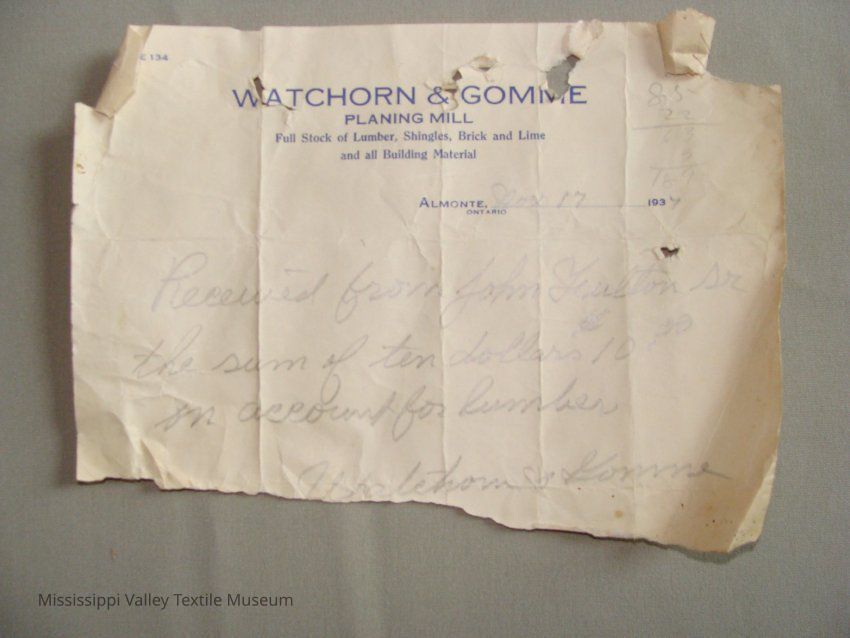 E 134
WATCHORN & GOMME
PLANING MILL
Full Stock of Lumber, Shingles, Brick and Lime
and all Building Material
ALMONTE, Nov 17 1934
ONTARIO
Received from John Fulton Sr
the sum of ten dollars $10.00
on account for lumber
Watchorn & Gomme
Mississippi Valley Textile Museum